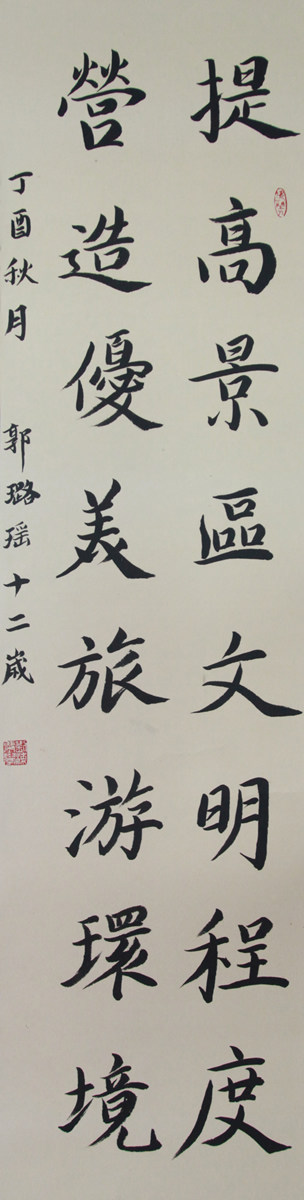 提高景區文明程度
營造優美旅游環境
丁酉秋月 郭璐瑶十二歲